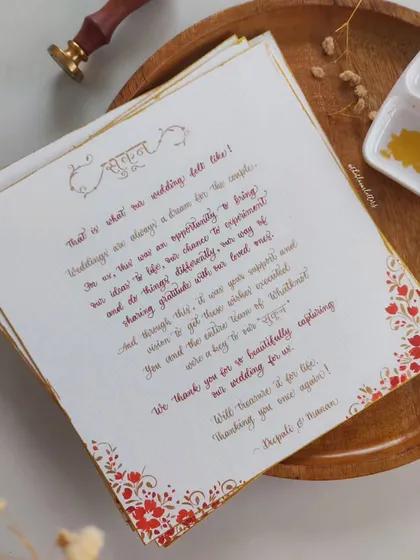 सुकून
That is what our wedding felt like!
Weddings are always a dream for the couple.
For us, this was an opportunity to bring
our ideas to life, our chance to experiment
and do things differently, our way of
sharing gratitude with our loved ones.
And through this, it was your support and
vision to get these wishes executed.
You and the entire team of Whatknot
were a key to our "सुकून"
We thank you for so beautifully capturing
our wedding for us.
Will treasure it for life.
Thanking you once again!
~ Deepali & Manan